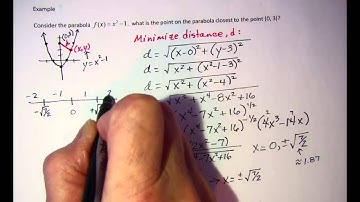 Example
Consider the parabola f(x) = x² − 1, what is the point on the parabola closest to the point (0, 3)?
Minimize distance, d:
(0,3)
(x,y)
y = x² − 1
d = √(x−0)² + (y−3)²
d = √x² + (x²−1−3)²
d = √x² + (x²−4)²
√x² + x⁴ − 8x² + 16
−7x² + 16)^1/2
−7x² + 16)^−1/2 (4x³ − 14x)
2x² − 7)
−7x² + 16
x = 0, ±√7/2
≈ 1.87
→ x = ±√7/2
−2 −1 1 2
−√7/2 0